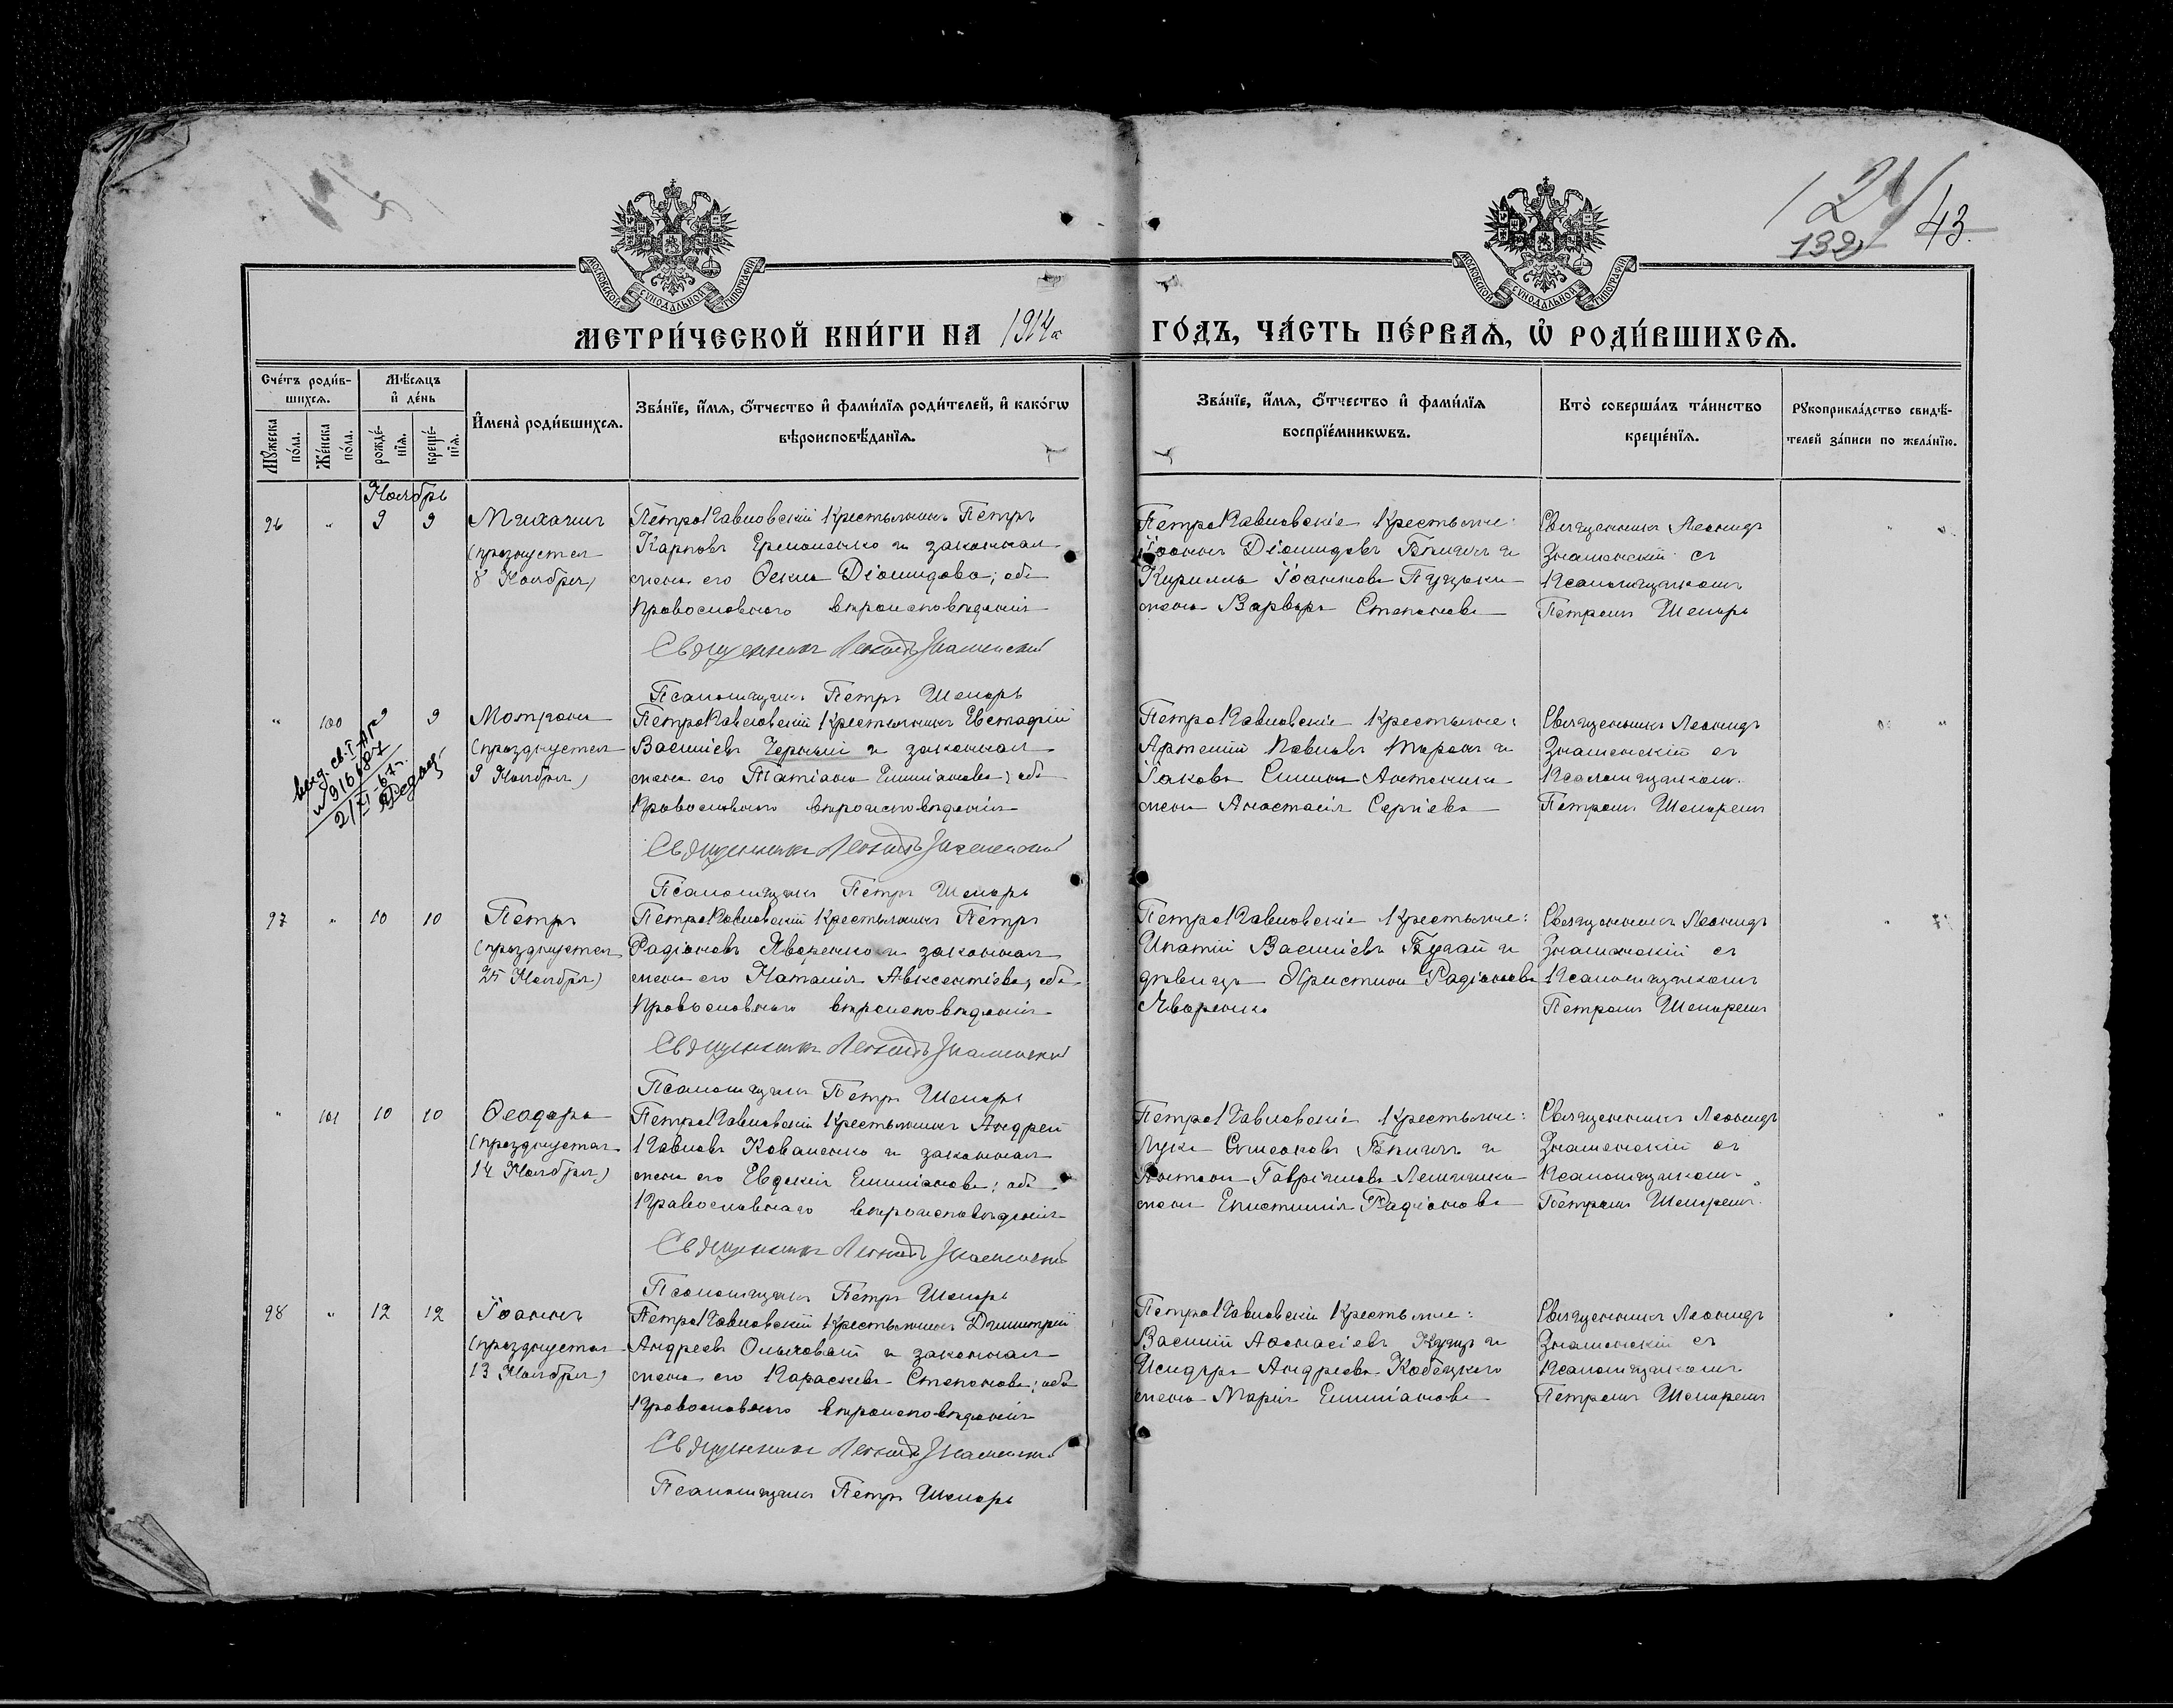 124
132 43.
МОСКОВСКОЙ СѴНОДАЛЬНОЙ ТИПОГРАФІИ
МОСКОВСКОЙ СѴНОДАЛЬНОЙ ТИПОГРАФІИ
МЕТРИ́ЧЕСКОЙ КНИ́ГИ НА 1914 ГО́ДЪ, ЧА́СТЬ ПЕ́РВАѦ, Ѡ҆ РОДИ́ВШИХСѦ.
Сче́тъ роди́вшихсѧ.
Мꙋ́жеска по́ла.
Же́нска по́ла.
Мѣ́сѧцъ и҆ де́нь
рожде́нїѧ.
креще́нїѧ.
И҆мена̀ роди́вшихсѧ.
Зва́нїе, и҆́мѧ, ѻ҆́тчество и҆ фами́лїѧ роди́телей, и҆ како́гѡ
вѣроисповѣ́данїѧ.
Зва́нїе, и҆́мѧ, ѻ҆́тчество и҆ фами́лїѧ
воспрїе́мникѡвъ.
Кто̀ соверша́лъ та́инство
креще́нїѧ.
Рꙋкоприкла́дство свидѣ́-
телей за́писи по жела́нїю.
Ноябрь
96 " 9 9 Михаилъ
(празднуется
8 Ноября)
ПетроПавловскій Крестьянинъ Петръ
Карповъ Ермоленко и законная
жена его Ѳекла Діомидова; оба
Православнаго вѣроисповѣданія
Священникъ Леонидъ Знаменскій
Псаломщикъ Петръ Шепарь
ПетроПавловскіе Крестьяне:
Іоаннъ Діомидовъ и
Кирилла Іоаннова
жена Варвара Степанова
Священникъ Леонидъ
Знаменскій съ
Псаломщикомъ
Петромъ Шепарь
" 100 9 9 Матрона
(празднуется
9 Ноября)
выд. св. I-АР
№ 916687
2/XI-67г.
ПетроПавловскій Крестьянинъ Евстафій
Василіевъ Черный и законная
жена его Татіана Емиліанова; оба
Православнаго вѣроисповѣданія
Священникъ Леонидъ Знаменскій
Псаломщикъ Петръ Шепарь
ПетроПавловскіе Крестьяне:
Артемій Павловъ Таранъ и
Іакова
жена Анастасія Сергіева
Священникъ Леонидъ
Знаменскій съ
Псаломщикомъ
Петромъ Шепаремъ
97 " 10 10 Петръ
(празднуется
25 Ноября)
ПетроПавловскій Крестьянинъ Петръ
Радіоновъ Яворенко и законная
жена его Наталія Авксентіева; оба
Православнаго вѣроисповѣданія
Священникъ Леонидъ Знаменскій
Псаломщикъ Петръ Шепарь
ПетроПавловскіе Крестьяне:
Ипатій Василіевъ Бугай и
дѣвица Христина Радіонова
Яворенко
Священникъ Леонидъ
Знаменскій съ
Псаломщикомъ
Петромъ Шепаремъ
" 101 10 10 Ѳеодора
(празднуется
14 Ноября)
ПетроПавловскій Крестьянинъ Андрей
Павловъ Коваленко и законная
жена его Евдокія Емиліанова; оба
Православнаго вѣроисповѣданія
Священникъ Леонидъ Знаменскій
Псаломщикъ Петръ Шепарь
ПетроПавловскіе Крестьяне:
Лука Симеоновъ и
Гавріилова
жена Епистимія Радіонова
Священникъ Леонидъ
Знаменскій съ
Псаломщикомъ
Петромъ Шепаремъ
98 " 12 12 Іоаннъ
(празднуется
13 Ноября)
ПетроПавловскій Крестьянинъ Димитрій
Андреевъ Ольховой и законная
жена его Параскева Степанова; оба
Православнаго вѣроисповѣданія
Священникъ Леонидъ Знаменскій
Псаломщикъ Петръ Шепарь
ПетроПавловскіи Крестьяне:
Василій Аѳанасіевъ и
Исидора Андреева Кобецкого
жена Марія Емиліанова
Священникъ Леонидъ
Знаменскій съ
Псаломщикомъ
Петромъ Шепаремъ